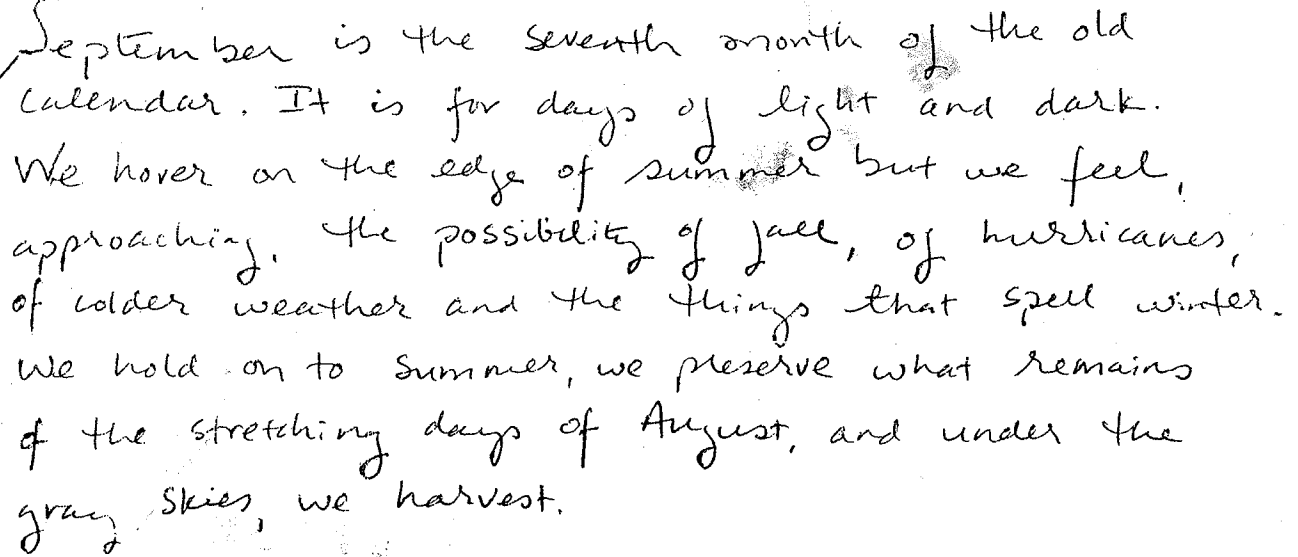 September is the seventh month of the old
calendar. It is for days of light and dark.
We hover on the edge of summer but we feel,
approaching, the possibility of fall, of hurricanes,
of colder weather and the things that spell winter.
We hold on to summer, we preserve what remains
of the stretching days of August, and under the
gray skies, we harvest.